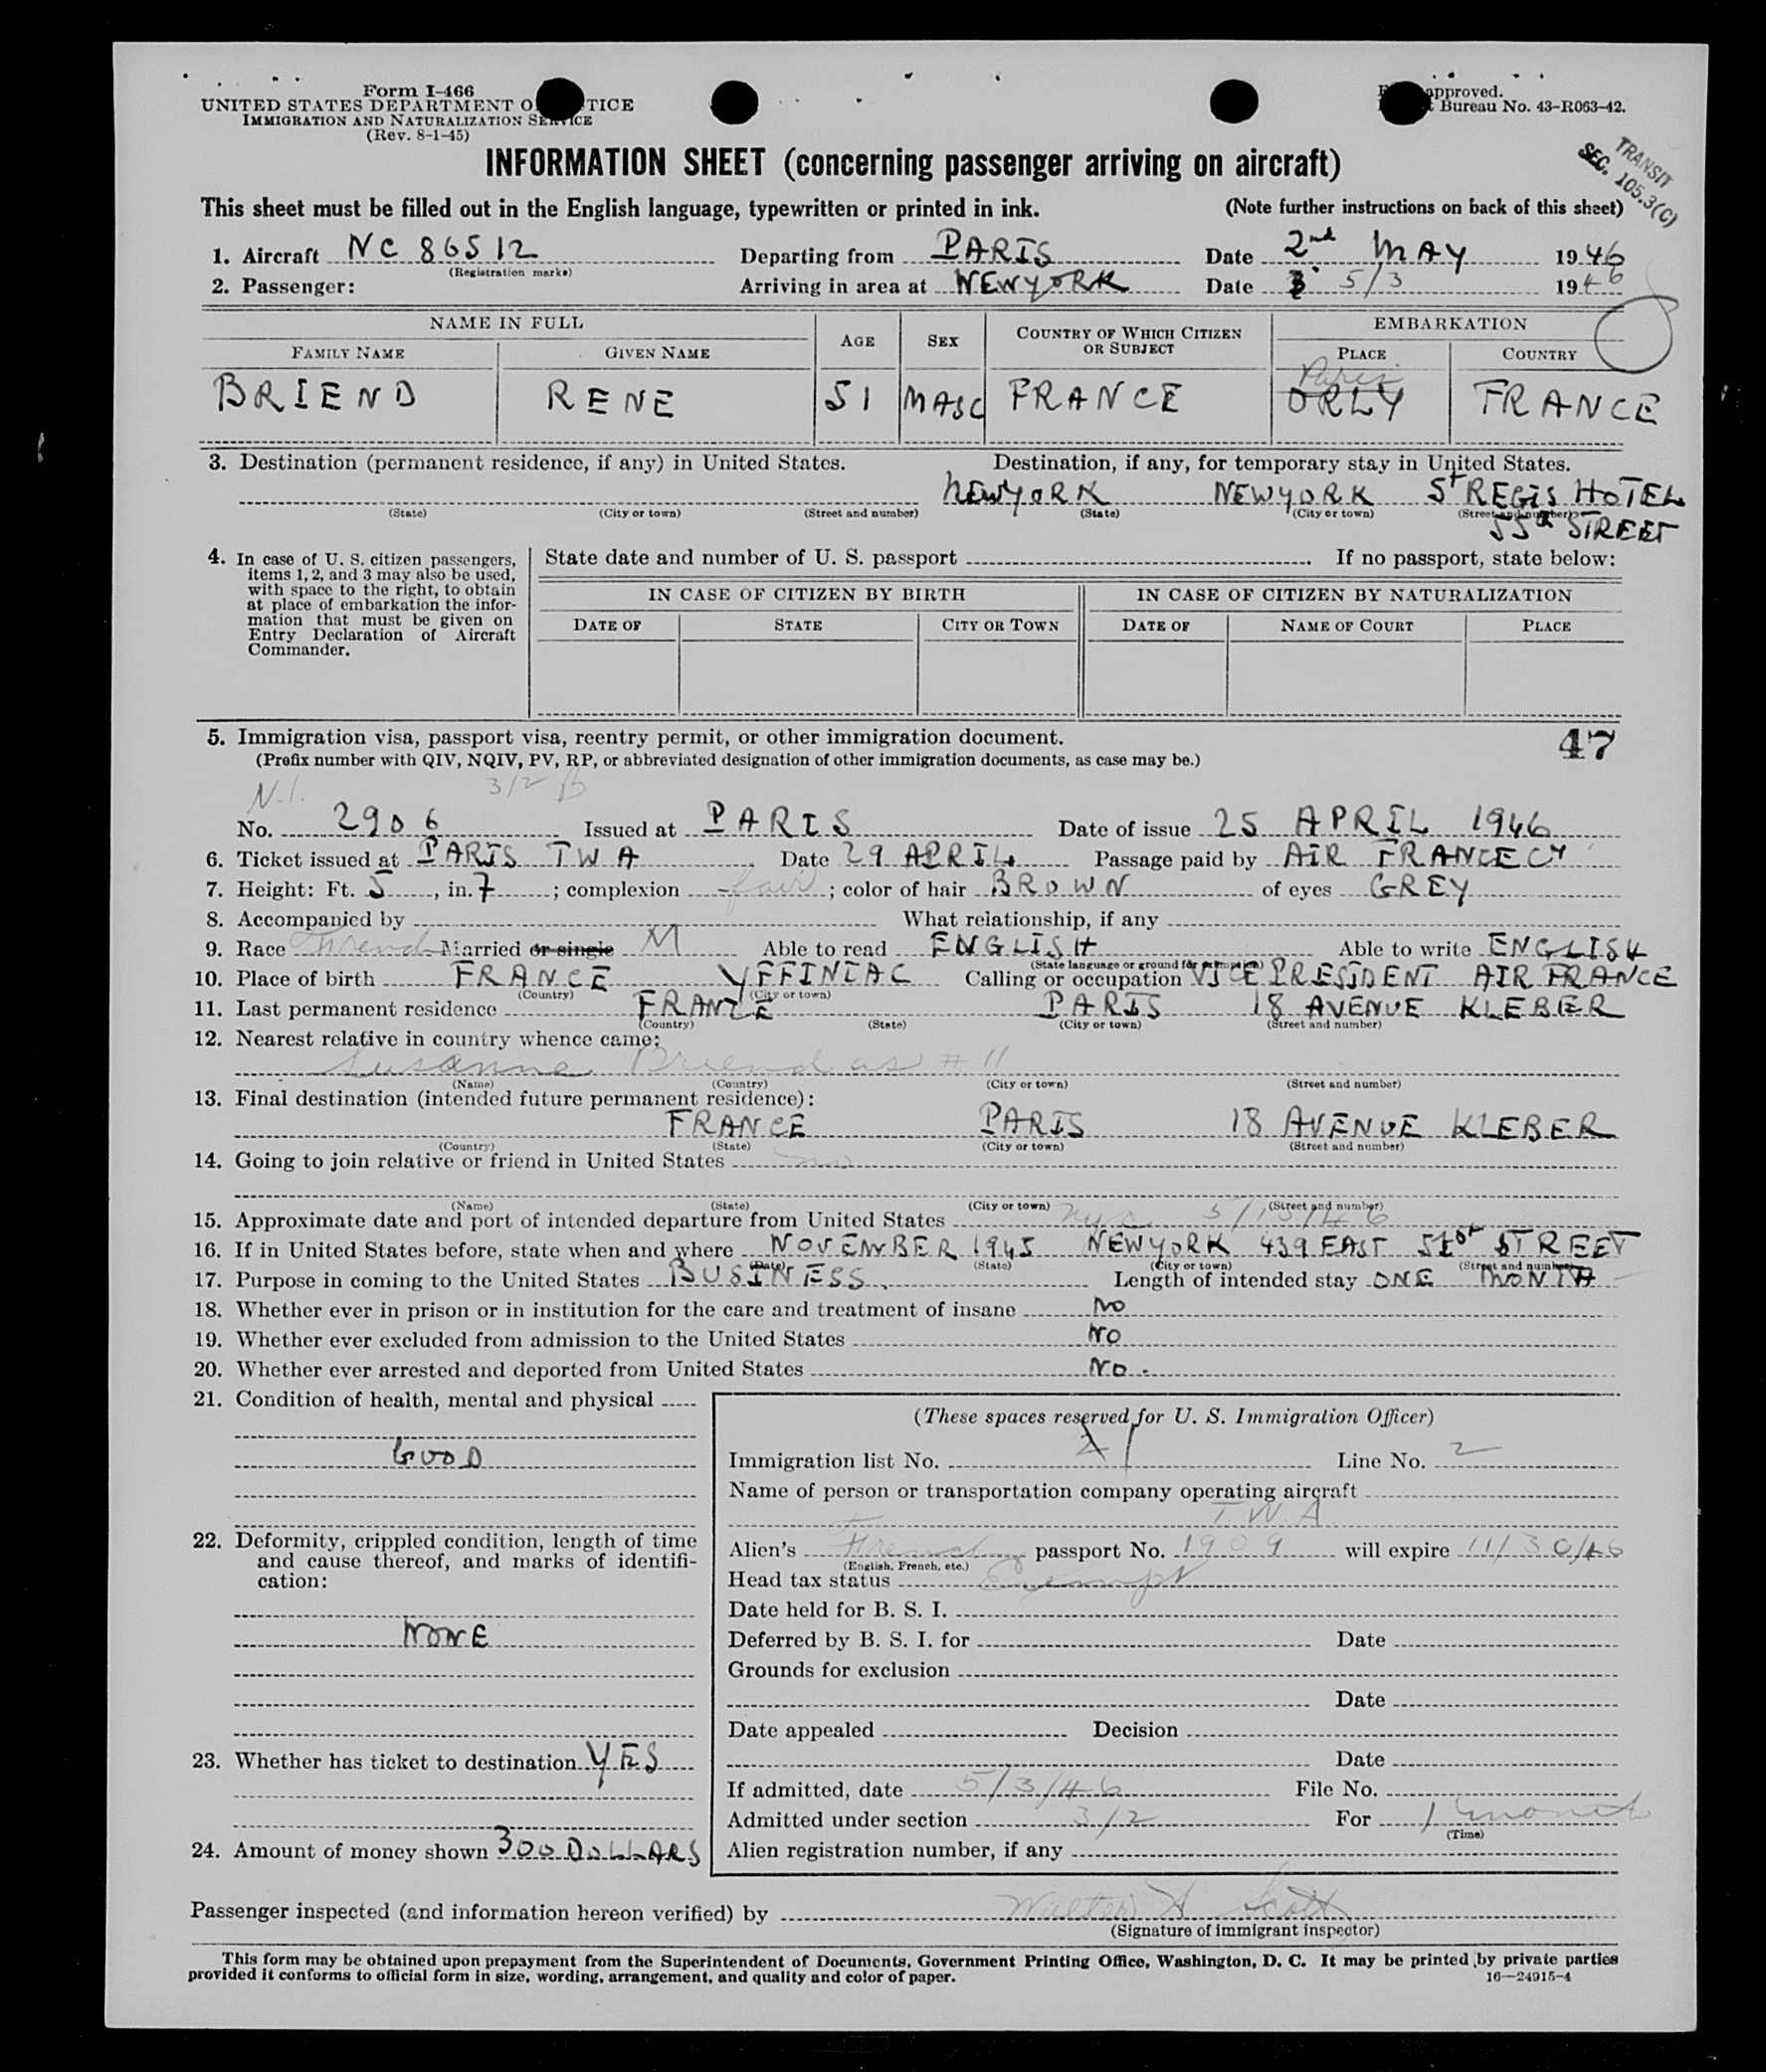 Form I-466
UNITED STATES DEPARTMENT O TICE
IMMIGRATION AND NATURALIZATION SERVICE
(Rev. 8-1-45)
approved.
Bureau No. 43-R063-42.
TRANSIT
SEC. 105.3(C)
INFORMATION SHEET (concerning passenger arriving on aircraft)
This sheet must be filled out in the English language, typewritten or printed in ink. (Note further instructions on back of this sheet)
1. Aircraft NC 86512 Departing from PARIS Date 2nd MAY 1946
(Registration marks)
2. Passenger: Arriving in area at NEWYORK Date 5/3 1946
NAME IN FULL AGE SEX COUNTRY OF WHICH CITIZEN OR SUBJECT EMBARKATION
FAMILY NAME GIVEN NAME PLACE COUNTRY
Paris
BRIEND RENE 51 MASC FRANCE ORLY FRANCE
3. Destination (permanent residence, if any) in United States. Destination, if any, for temporary stay in United States.
NEWYORK NEWYORK St REGIS HOTEL
(State) (City or town) (Street and number) (State) (City or town) (Street and number)
55th STREET
4. In case of U. S. citizen passengers, items 1, 2, and 3 may also be used, with space to the right, to obtain at place of embarkation the information that must be given on Entry Declaration of Aircraft Commander.
State date and number of U. S. passport If no passport, state below:
IN CASE OF CITIZEN BY BIRTH IN CASE OF CITIZEN BY NATURALIZATION
DATE OF STATE CITY OR TOWN DATE OF NAME OF COURT PLACE
5. Immigration visa, passport visa, reentry permit, or other immigration document. 47
(Prefix number with QIV, NQIV, PV, RP, or abbreviated designation of other immigration documents, as case may be.)
N.I. 3/2 B
No. 2906 Issued at PARIS Date of issue 25 APRIL 1946
6. Ticket issued at PARIS TWA Date 29 APRIL Passage paid by AIR FRANCE CY
7. Height: Ft. 5, in. 7; complexion fair; color of hair BROWN of eyes GREY
8. Accompanied by What relationship, if any
9. Race French Married or single M Able to read ENGLISH Able to write ENGLISH
(State language or ground for exemption)
10. Place of birth FRANCE YFFINIAC Calling or occupation VICE PRESIDENT AIR FRANCE
(Country) (City or town)
11. Last permanent residence FRANCE PARIS 18 AVENUE KLEBER
(Country) (State) (City or town) (Street and number)
12. Nearest relative in country whence came:
Susanne Briend as # 11
(Name) (Country) (City or town) (Street and number)
13. Final destination (intended future permanent residence):
FRANCE PARIS 18 AVENUE KLEBER
(Country) (State) (City or town) (Street and number)
14. Going to join relative or friend in United States no
(Name) (State) (City or town) (Street and number)
15. Approximate date and port of intended departure from United States nyc 5/15/46
16. If in United States before, state when and where NOVEMBER 1945 NEWYORK 439 EAST 51st STREET
(Date) (State) (City or town) (Street and number)
17. Purpose in coming to the United States BUSINESS. Length of intended stay ONE MONTH
18. Whether ever in prison or in institution for the care and treatment of insane NO
19. Whether ever excluded from admission to the United States NO
20. Whether ever arrested and deported from United States NO.
21. Condition of health, mental and physical
GOOD
22. Deformity, crippled condition, length of time and cause thereof, and marks of identification:
NONE
23. Whether has ticket to destination YES
24. Amount of money shown 300 DOLLARS
(These spaces reserved for U. S. Immigration Officer)
Immigration list No. Line No. 2
Name of person or transportation company operating aircraft
T.W.A.
Alien's French passport No. 1909 will expire 11/30/46
(English, French, etc.)
Head tax status Exempt
Date held for B. S. I.
Deferred by B. S. I. for Date
Grounds for exclusion
Date
Date appealed Decision
Date
If admitted, date 5/3/46 File No.
Admitted under section 3/2 For 1 month
(Time)
Alien registration number, if any
Passenger inspected (and information hereon verified) by Walter A Scott
(Signature of immigrant inspector)
This form may be obtained upon prepayment from the Superintendent of Documents, Government Printing Office, Washington, D. C. It may be printed by private parties
provided it conforms to official form in size, wording, arrangement, and quality and color of paper. 16—24915-4